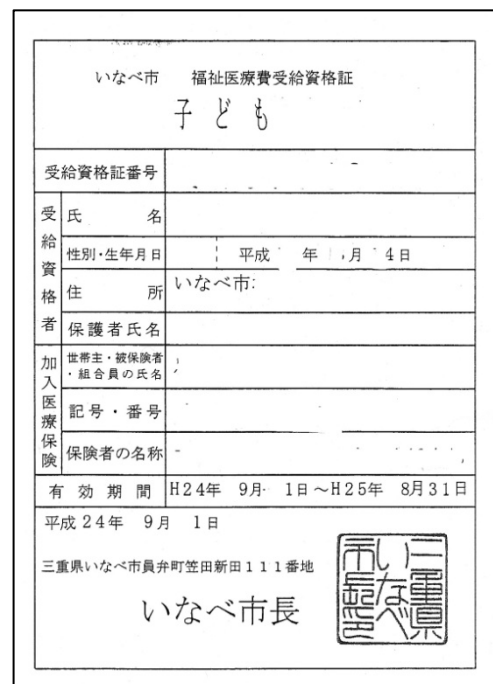 いなべ市 福祉医療費受給資格証
子ども
受給資格証番号
受給資格者
氏 名
性別・生年月日 平成 年 月 4日
住 所 いなべ市
保護者氏名
加入医療保険
世帯主・被保険者・組合員の氏名
記号・番号
保険者の名称
有効期間 H24年 9月 1日～H25年 8月31日
平成24年 9月 1日
三重県いなべ市員弁町笠田新田111番地
いなべ市長
三重県
いなべ
市長印